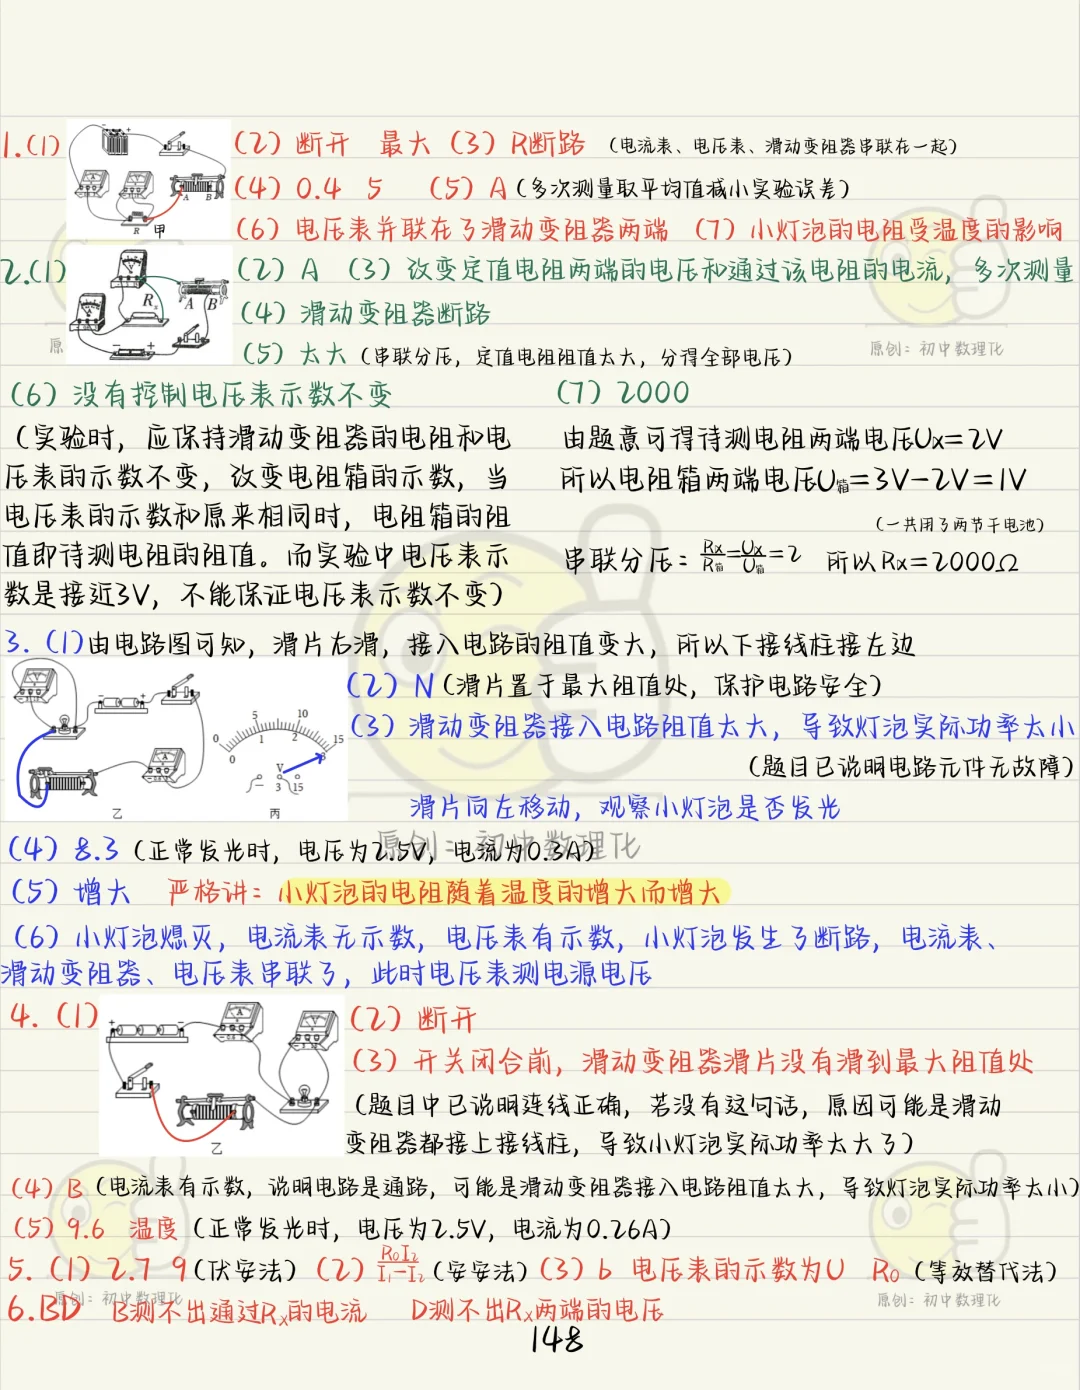 1.(1) (2) 断开 最大 (3) R断路 (电流表、电压表、滑动变阻器串联在一起)
(4) 0.4 5 (5) A (多次测量取平均值减小实验误差)
甲
(6) 电压表并联在了滑动变阻器两端 (7) 小灯泡的电阻受温度的影响
2.(1) (2) A (3) 改变定值电阻两端的电压和通过该电阻的电流，多次测量
(4) 滑动变阻器断路
(5) 太大 (串联分压，定值电阻阻值太大，分得全部电压)
原创：初中数理化
(6) 没有控制电压表示数不变
(实验时，应保持滑动变阻器的电阻和电
压表的示数不变，改变电阻箱的示数，当
电压表的示数和原来相同时，电阻箱的阻
值即待测电阻的阻值。而实验中电压表示
数是接近3V，不能保证电压表示数不变)
(7) 2000
由题意可得待测电阻两端电压Ux=2V
所以电阻箱两端电压U箱=3V-2V=1V
(一共用了两节干电池)
串联分压：Rx/R箱=Ux/U箱=2 所以Rx=2000Ω
3. (1)由电路图可知，滑片右滑，接入电路的阻值变大，所以下接线柱接左边
(2) N (滑片置于最大阻值处，保护电路安全)
(3) 滑动变阻器接入电路阻值太大，导致灯泡实际功率太小
(题目已说明电路元件无故障)
滑片向左移动，观察小灯泡是否发光
乙 丙
原创：初中数理化
(4) 8.3 (正常发光时，电压为2.5V，电流为0.3A)
(5) 增大 严格讲：小灯泡的电阻随着温度的增大而增大
(6) 小灯泡熄灭，电流表无示数，电压表有示数，小灯泡发生了断路，电流表、
滑动变阻器、电压表串联了，此时电压表测电源电压
4. (1) (2) 断开
(3) 开关闭合前，滑动变阻器滑片没有滑到最大阻值处
(题目中已说明连线正确，若没有这句话，原因可能是滑动
变阻器都接上接线柱，导致小灯泡实际功率太大了)
乙
(4) B (电流表有示数，说明电路是通路，可能是滑动变阻器接入电路阻值太大，导致灯泡实际功率太小)
(5) 9.6 温度 (正常发光时，电压为2.5V，电流为0.26A)
5. (1) 2.7 9 (伏安法) (2) R₀I₂/I₁-I₂ (安安法) (3) b 电压表的示数为U R₀ (等效替代法)
原创：初中数理化
原创：初中数理化
6.BD B测不出通过Rx的电流 D测不出Rx两端的电压
148